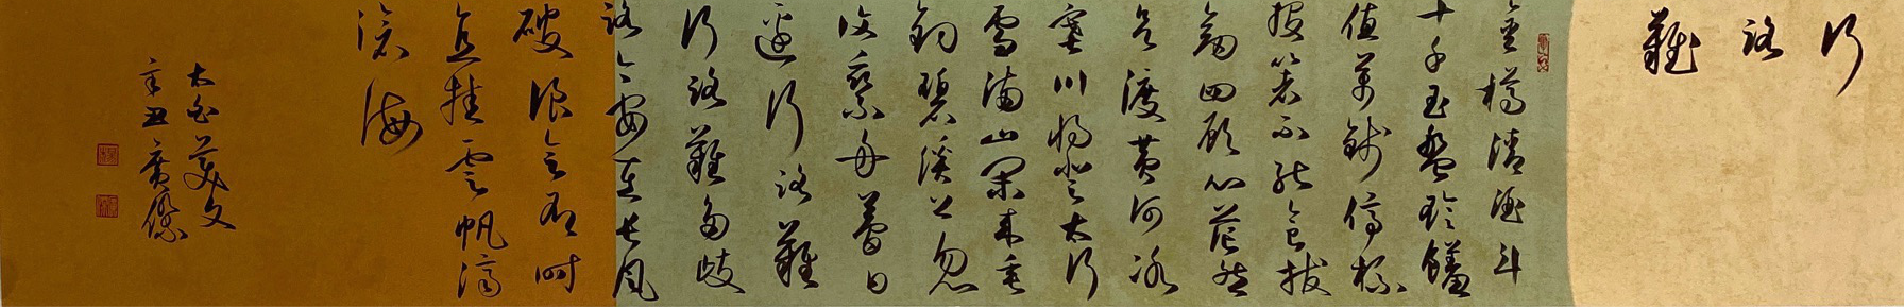 行路難
金樽清酒斗
十千玉盤珍饈
值萬錢停杯
投箸不能食拔
劍四顧心茫然
欲渡黃河冰
塞川將登太行
雪滿山閑來垂
釣碧溪上忽
復乘舟夢日
邊行路難
行路難多歧
路今安在長風
破浪會有時
直掛雲帆濟
滄海
太白美文
辛丑